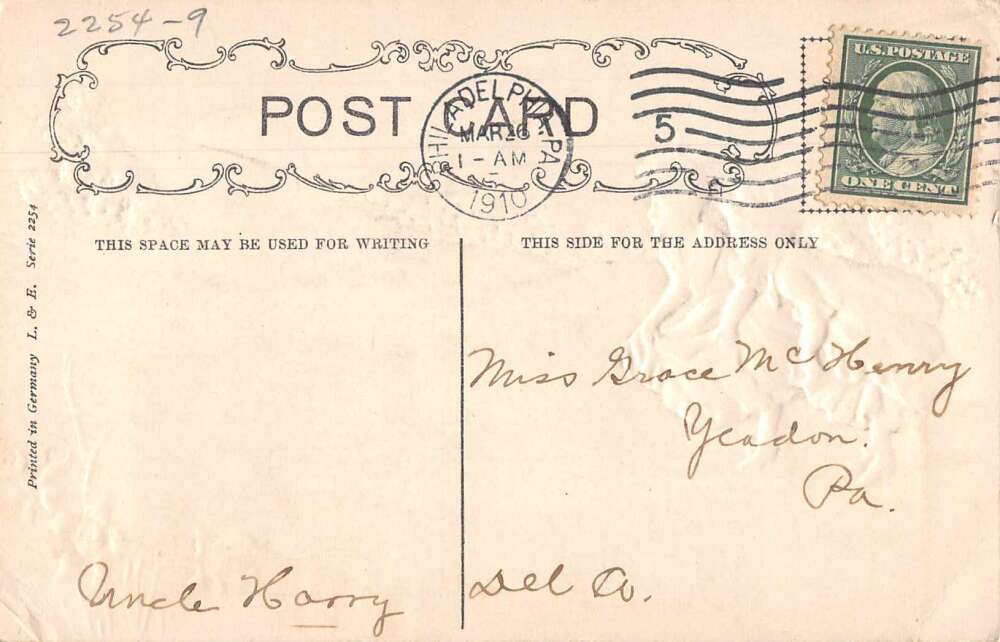 2254-9
POST CARD
PHILADELPHIA, PA.
MAR 26
1 - AM
1910
5
U.S. POSTAGE
ONE CENT
THIS SPACE MAY BE USED FOR WRITING
THIS SIDE FOR THE ADDRESS ONLY
Printed in Germany L. & E. Serie 2254
Miss Grace McHenry
Yeadon.
Pa.
Del Co.
Uncle Harry